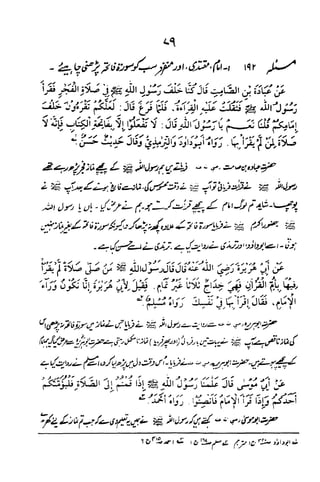 ۷۹
مسئلہ ۱۹۲ ۔ امام، مقتدی، اور منفرد سب کو سورۃ فاتحہ پڑھنی چاہیئے ۔
عَنْ عُبَادَةَ بْنِ الصَّامِتِ قَالَ كُنَّا خَلْفَ رَسُولِ اللهِ ﷺ فِي صَلَاةِ الْفَجْرِ فَقَرَأَ
رَسُولُ اللهِ ﷺ فَثَقُلَتْ عَلَيْهِ الْقِرَاءَةُ، فَلَمَّا فَرَغَ قَالَ: لَعَلَّكُمْ تَقْرَءُونَ خَلْفَ
إِمَامِكُمْ قُلْنَا نَعَمْ يَا رَسُولَ اللهِ قَالَ: لَا تَفْعَلُوا إِلَّا بِفَاتِحَةِ الْكِتَابِ فَإِنَّهُ لَا
صَلَاةَ لِمَنْ لَمْ يَقْرَأْ بِهَا. رَوَاهُ أَبُو دَاوُدَ وَالتِّرْمِذِيُّ وَقَالَ حَدِيثٌ حَسَنٌ
حضرت عبادہ بن صامت فرماتے ہیں ہم رسول اللہ ﷺ کے پیچھے نماز فجر پڑھ رہے تھے
رسول اللہ ﷺ نے قرأت فرمائی تو آپ ﷺ نماز سے فارغ ہونے کے بعد آپ ﷺ نے
پوچھا۔ شاید تم لوگ امام کے پیچھے قرأت کرتے ہو۔ ہم نے عرض کیا۔ ہاں یا رسول اللہ
ﷺ نے فرمایا سورۃ فاتحہ کے علاوہ کچھ نہ پڑھا کرو کیونکہ سورۃ فاتحہ کے بغیر نماز نہیں
ہوتی۔ اسے ابوداؤد اور ترمذی نے روایت کیا ہے۔ ترمذی نے اسے حسن کہا ہے۔
عَنْ أَبِي هُرَيْرَةَ رَضِيَ اللهُ عَنْهُ قَالَ قَالَ رَسُولُ اللهِ ﷺ مَنْ صَلَّى صَلَاةً لَمْ يَقْرَأْ
فِيهَا بِأُمِّ الْقُرْآنِ فَهِيَ خِدَاجٌ ثَلَاثًا غَيْرُ تَمَامٍ. فَقِيلَ لِأَبِي هُرَيْرَةَ إِنَّا نَكُونُ وَرَاءَ
الْإِمَامِ. فَقَالَ اقْرَأْ بِهَا فِي نَفْسِكَ رَوَاهُ مُسْلِمٌ
حضرت ابوہریرہ سے روایت ہے رسول اللہ ﷺ نے فرمایا جس نے نماز میں سورۃ فاتحہ نہ پڑھی اس
کی نماز ناقص ہے آپ ﷺ نے یہ بات تین مرتبہ
کے پیچھے ہوتے ہیں۔ حضرت ابوہریرہ نے فرمایا۔ اس وقت دل میں پڑھ لیا کرو اسے مسلم نے روایت کیا ہے
عَنْ أَبِي مُوسَى قَالَ عَلَّمَنَا رَسُولُ اللهِ ﷺ إِذَا قُمْتُمْ إِلَى الصَّلَاةِ فَلْيَؤُمَّكُمْ
أَحَدُكُمْ وَإِذَا قَرَأَ الْإِمَامُ فَأَنْصِتُوا. رَوَاهُ أَحْمَدُ
حضرت ابوموسیٰ کہتے ہیں کہ رسول اللہ ﷺ نے ہمیں یہ تعلیم دی ہے کہ جب تم نماز کے لئے کھڑے